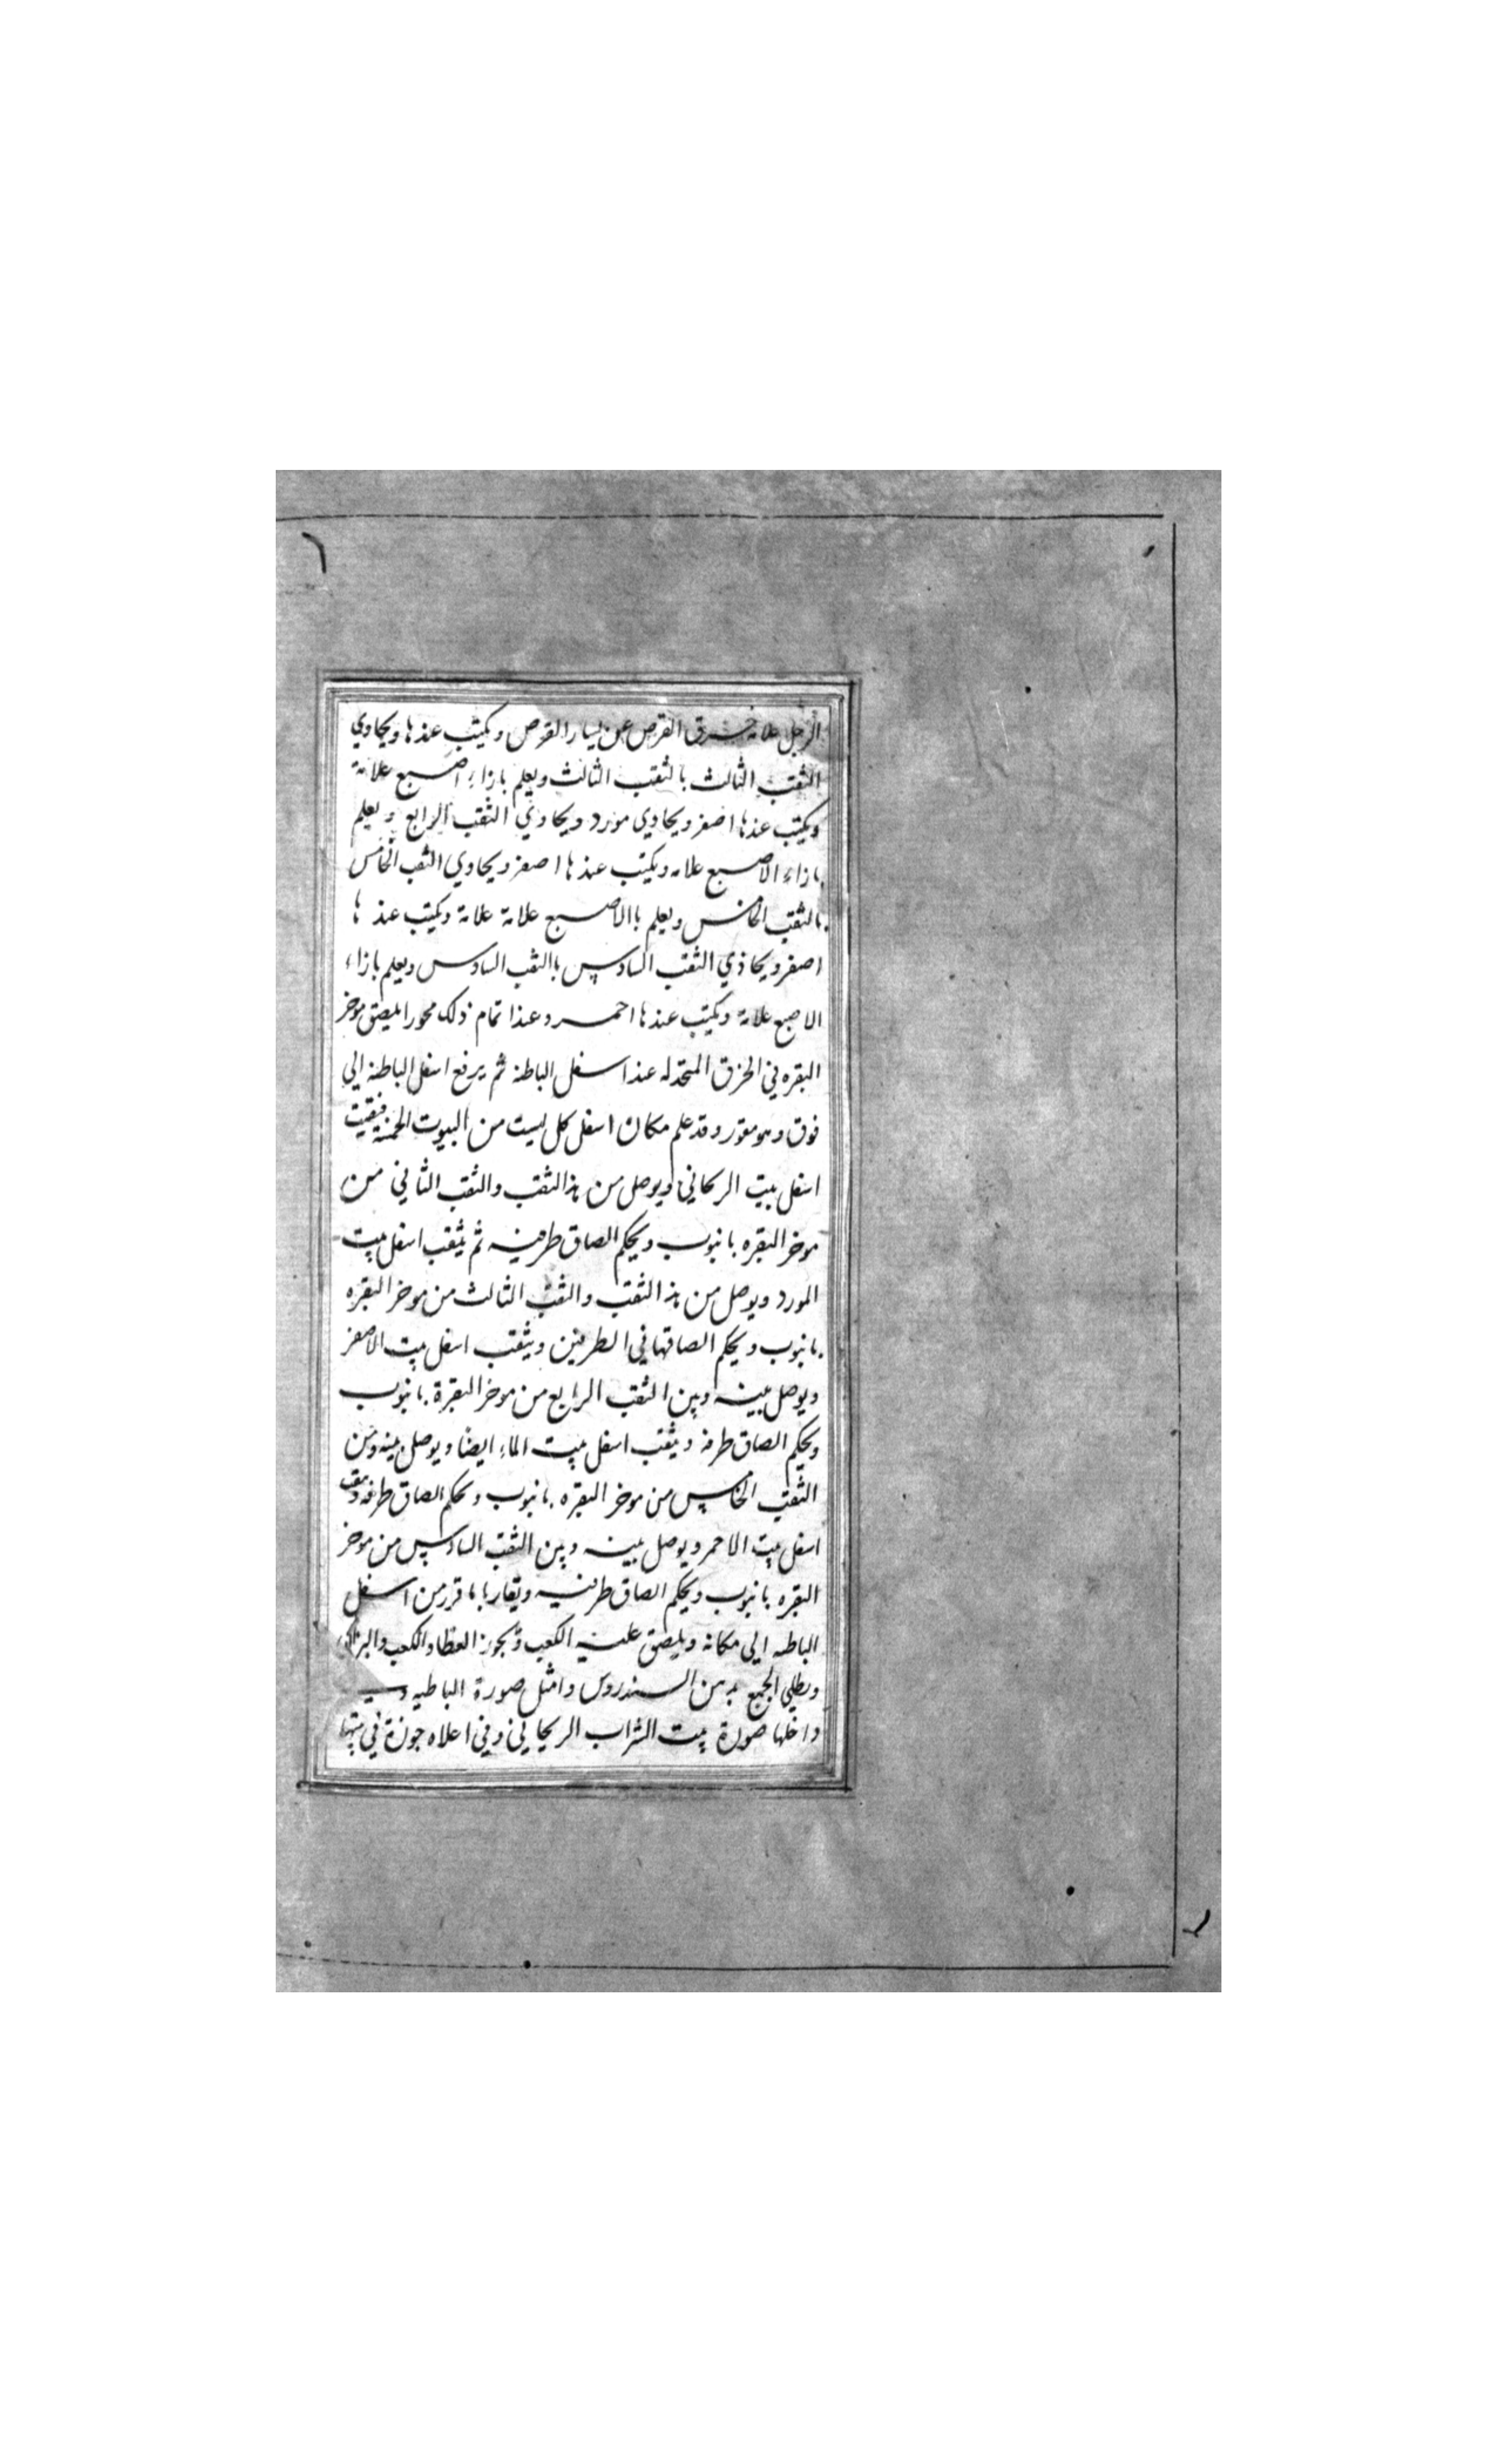 الرجل علامة خرق القرص عن يسار القرص ويكتب عندها ويحاوي
الثقب الثالث بالثقب الثالث ويعلم بازاء اصبع علامة
ويكتب عندها اصفر ويحاوي مورد ويحاوي الثقب الرابع ويعلم
بازاء الاصبع علامه ويكتب عندها اصفر ويحاوي الثقب الخامس
بالثقب الخامس ويعلم باالاصبع علامة علامة ويكتب عندها
اصفر ويحاذي الثقب السادس باالثقب السادس ويعلم بازاء
الاصبع علامة ويكتب عندها احمر وعندا تمام ذلك محورا يلصق موخر
البقره في الخرق المتخذله عندا سفل الباطنة ثم يرفع اسفل الباطنة الي
فوق وهو مقور وقد علم مكان اسفل كل بيت من البيوت الخمسة فيثقب
اسفل بيت الريحاني ويوصل من هذا الثقب والثقب الثاني من
موخر البقره بانبوب ويحكم الصاق طرفيه ثم يثقب اسفل بيت
المورد ويوصل من هذا الثقب والثقب الثالث من موخر البقره
بانبوب ويحكم الصاقها في الطرفين ويثقب اسفل بيت الاصفر
ويوصل بينه وبين الثقب الرابع من موخر البقرة بانبوب
ويحكم الصاق طرفه ويثقب اسفل بيت الماء ايضا ويوصل بينه وبين
الثقب الخامس من موخر البقره بانبوب ويحكم الصاق طرفه ويثقب
اسفل بيت الاحمر ويوصل بينه وبين الثقب السادس من موخر
البقره بانبوب ويحكم الصاق طرفيه ويعاربا ما قرر من اسفل
الباطنه الي مكانه ويلصق عليه الكعب ويجوز العظا والكعب والبزال
ويطلي الجميع بدهن السندروس وامثل صورة الباطيه و
داخلها صورة بيت الشراب الريحاني وفي اعلاه جوزة في